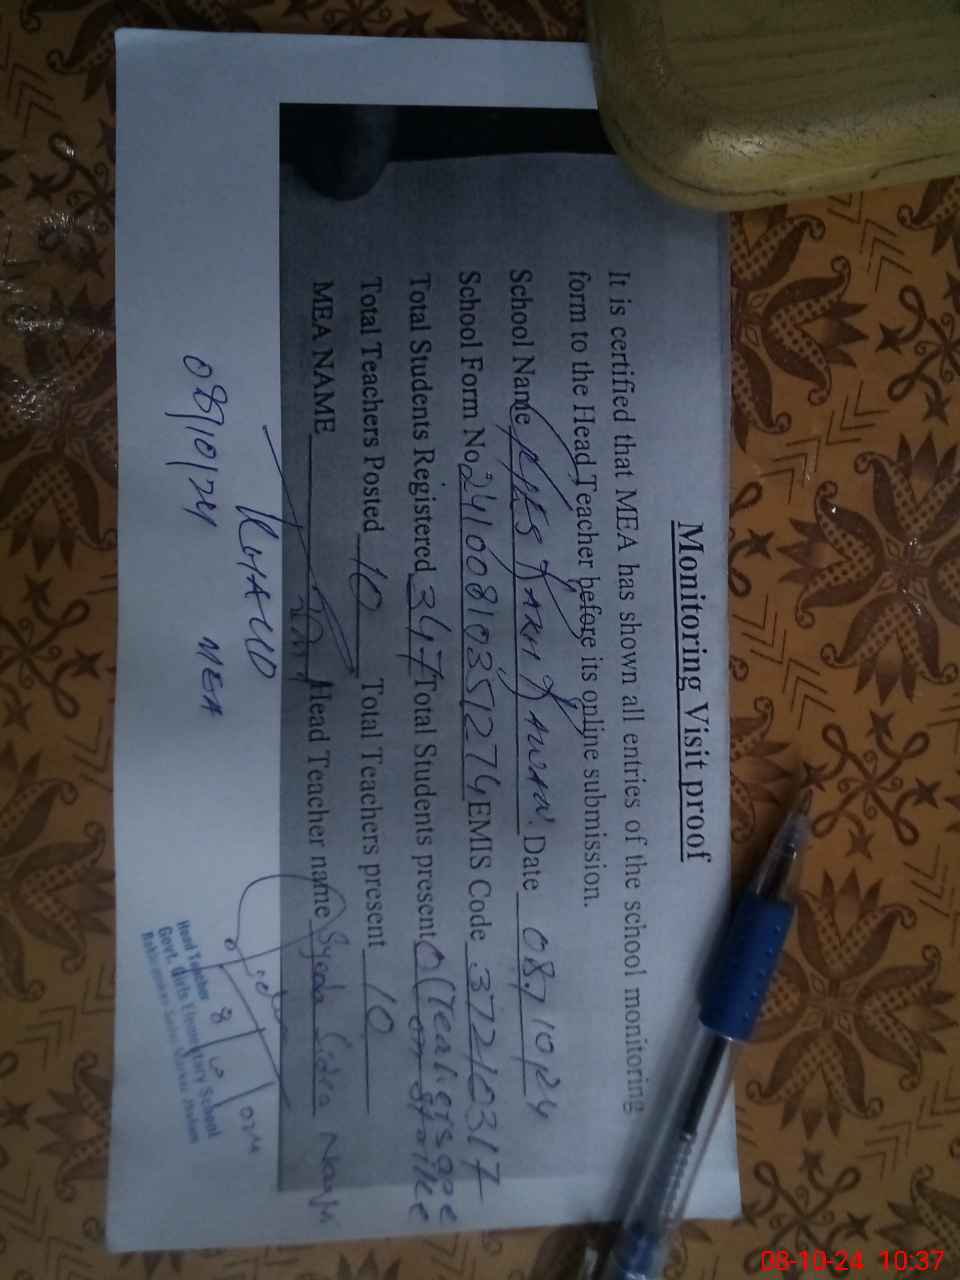 Monitoring Visit proof
It is certified that MEA has shown all entries of the school monitoring
form to the Head Teacher before its online submission.
School Name Date 08/10/24
School Form No 24100810351274 EMIS Code 37210317
Total Students Registered 347 Total Students present 0 (Teachers are on strike
Total Teachers Posted 10 Total Teachers present 10
MEA NAME Head Teacher name Syeda
08/10/24 MEA
Head Teacher
Govt. Girls Elementary School
8/10/2024
08-10-24 10:37